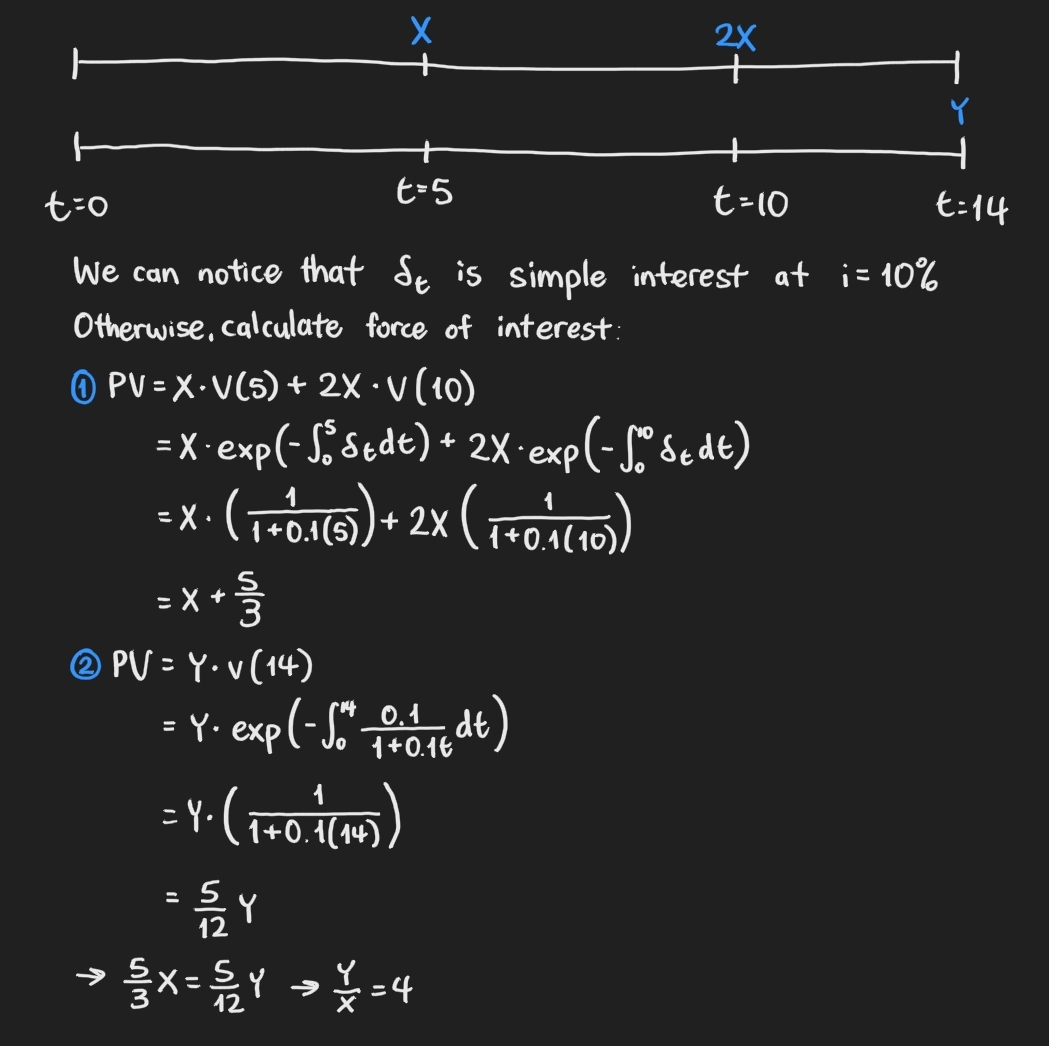 X 2X
Y
t=0 t=5 t=10 t=14
We can notice that δₜ is simple interest at i=10%
Otherwise, calculate force of interest:
① PV = X·V(5) + 2X·V(10)
= X·exp(-∫₀⁵ δₜdt) + 2X·exp(-∫₀¹⁰ δₜdt)
= X·(1/(1+0.1(5))) + 2X(1/(1+0.1(10)))
= X + 5/3
② PV = Y·v(14)
= Y·exp(-∫₀¹⁴ 0.1/(1+0.1t) dt)
= Y·(1/(1+0.1(14)))
= 5/12 Y
→ 5/3 X = 5/12 Y → Y/X = 4